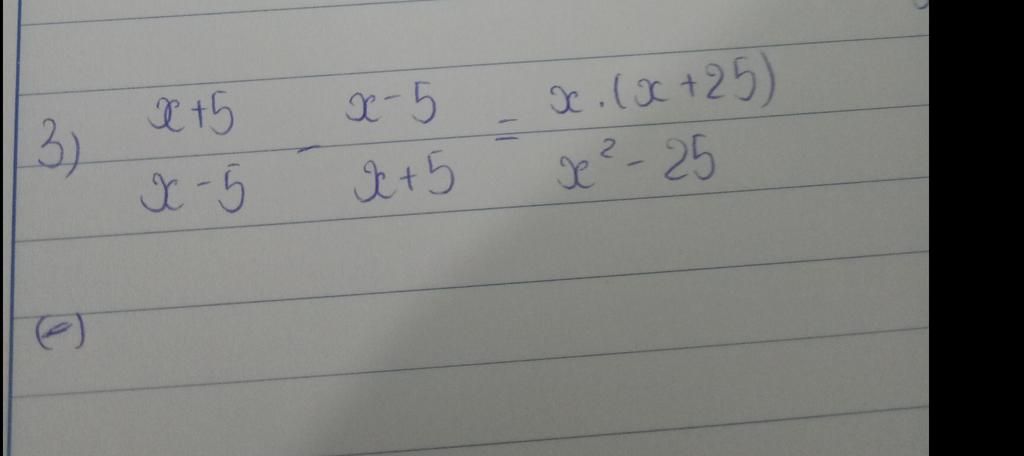 3) x+5/x-5 - x-5/x+5 = x.(x+25)/x²-25
(-)